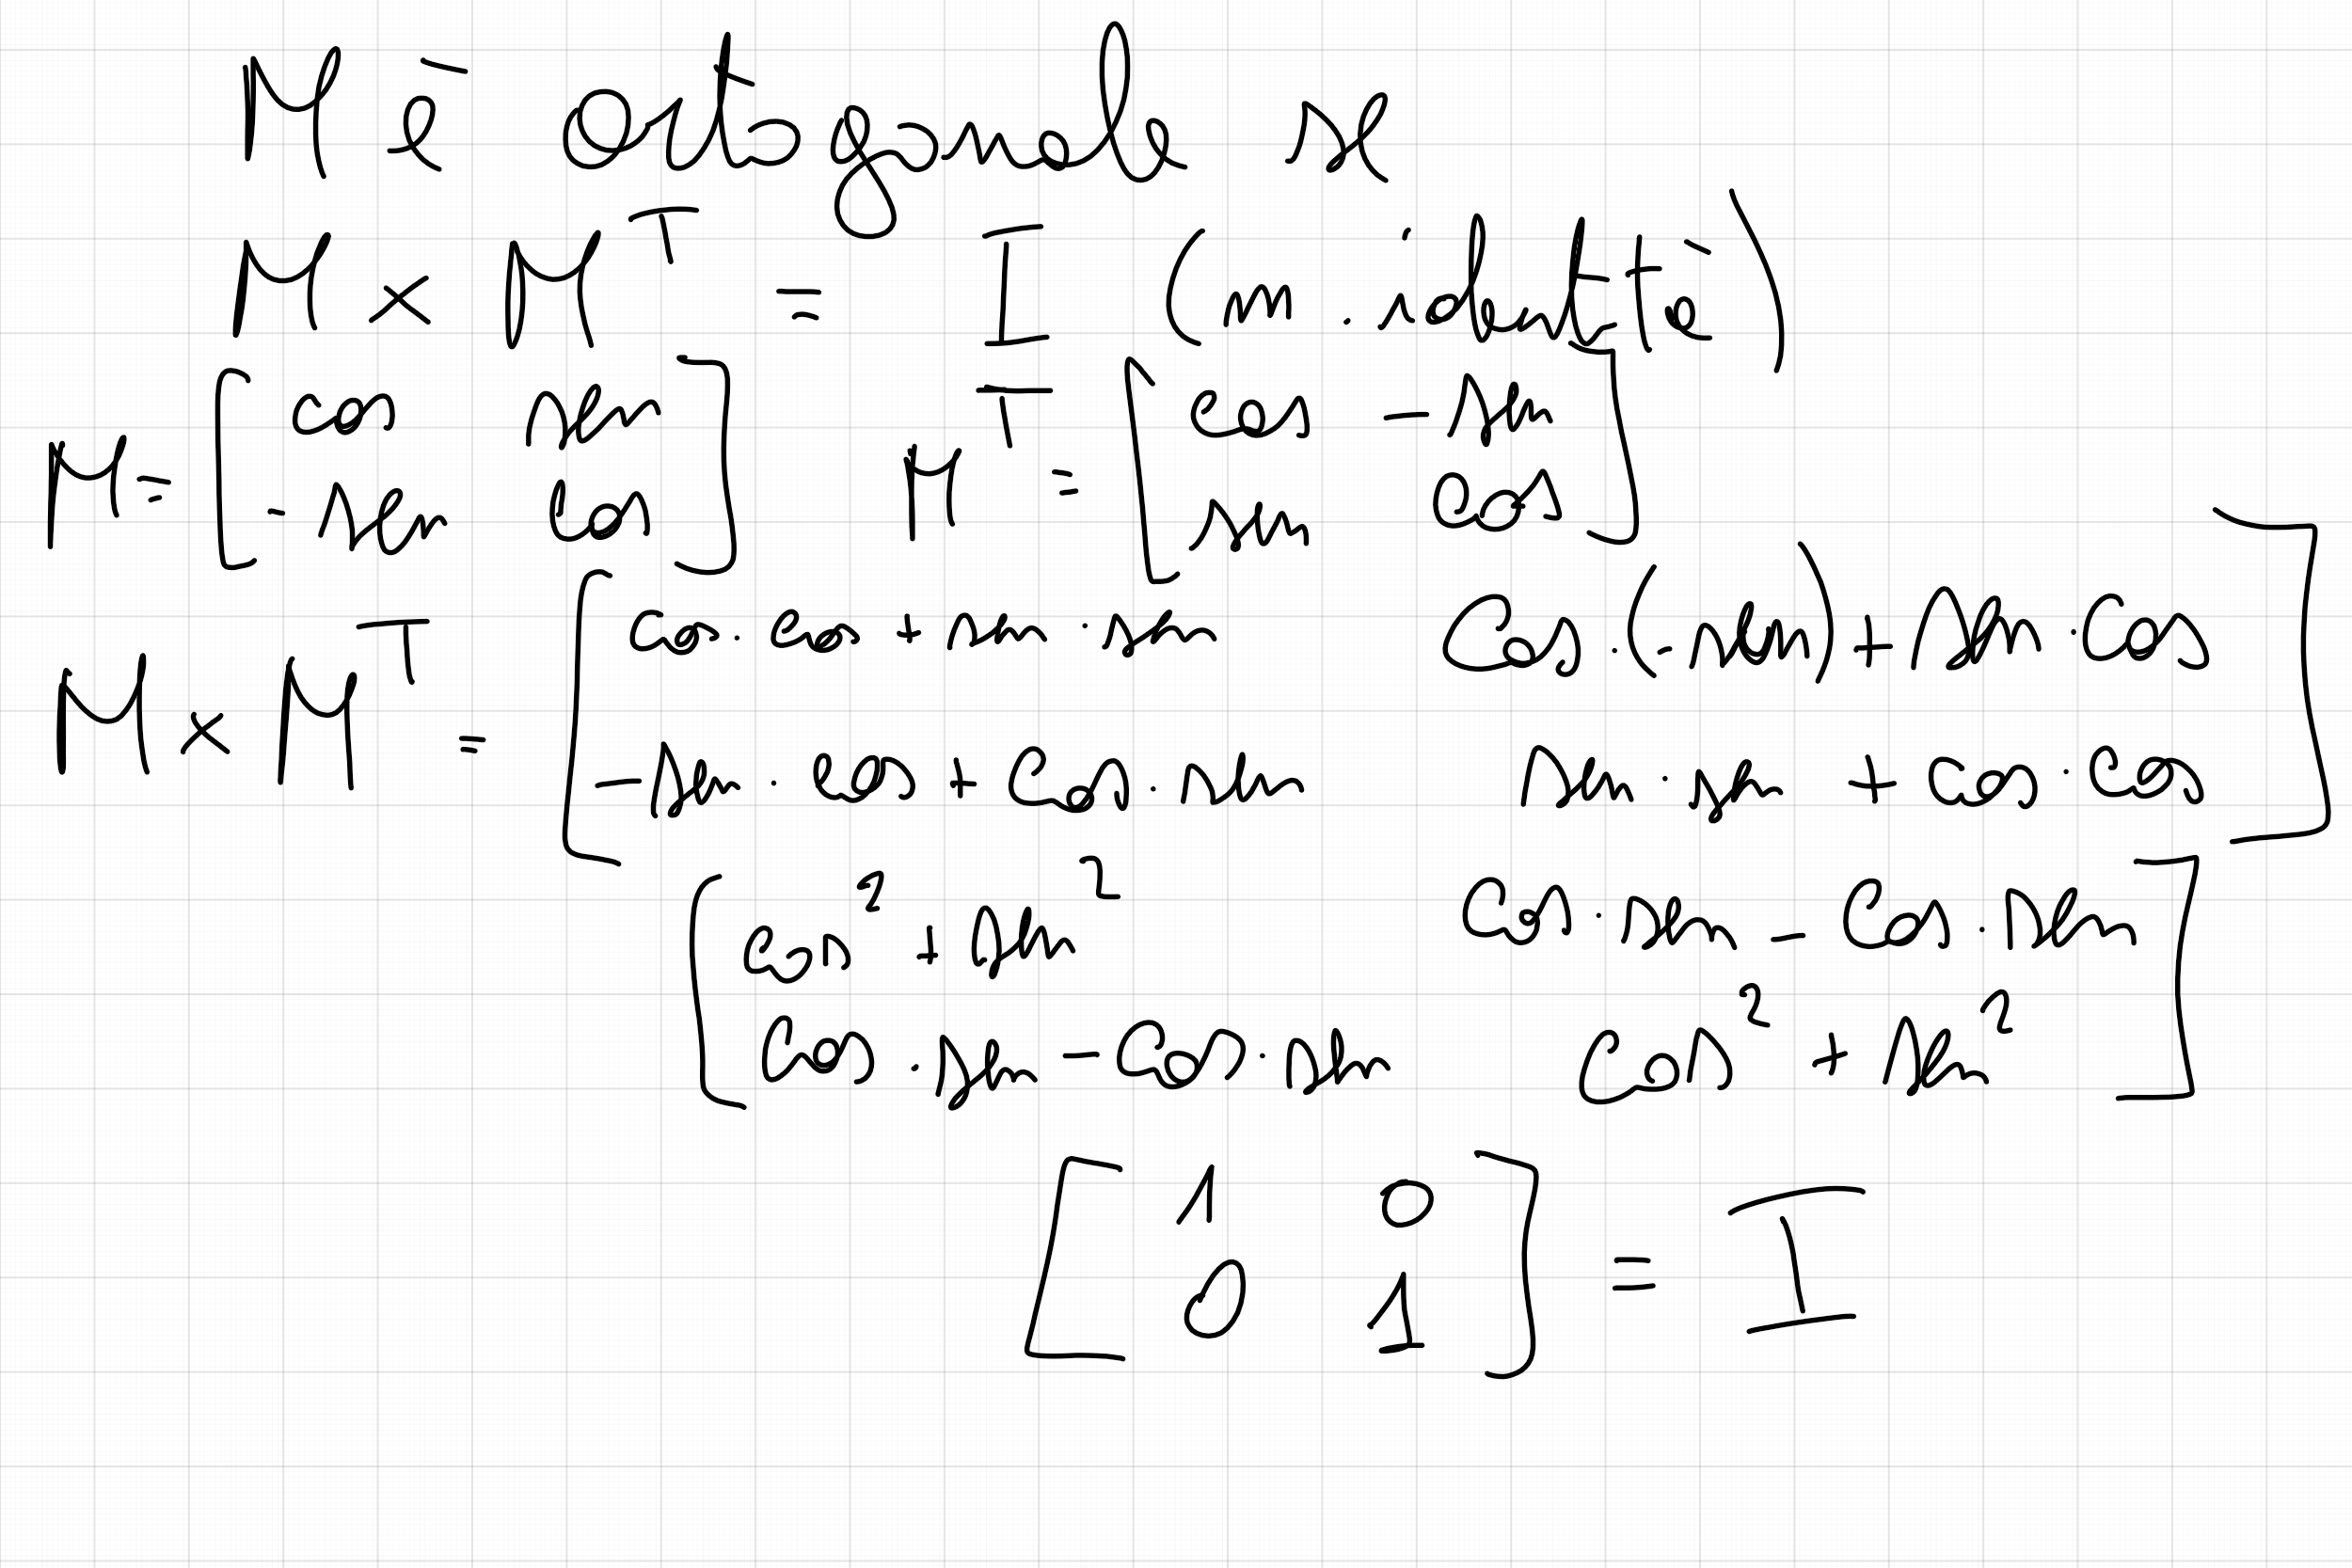 M è ortogonale se
M × M^T = I (m. identità)
M = [ cos sen ] M^T = [ cos -sen ]
[ -sen cos ] [ sen cos ]
M × M^T = [ cos · cos + sen · sen cos · (-sen) + sen · cos ]
[ -sen · cos + cos · sen sen · sen + cos · cos ]
[ cos² + sen² cos · sen - cos · sen ]
[ cos · sen - cos · sen cos² + sen² ]
[ 1 0 ]
[ 0 1 ] = I